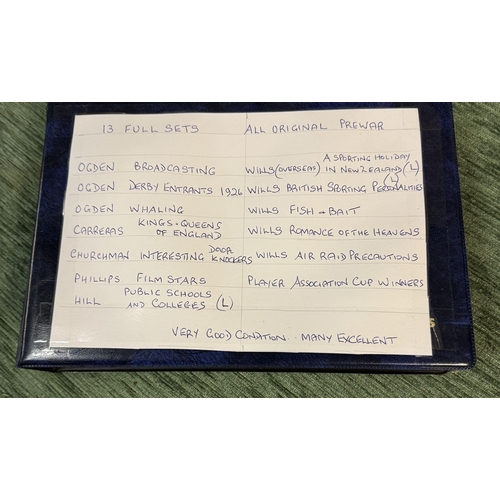 13 FULL SETS ALL ORIGINAL PREWAR
OGDEN BROADCASTING
OGDEN DERBY ENTRANTS 1926
OGDEN WHALING
CARRERAS KINGS + QUEENS
OF ENGLAND
CHURCHMAN INTERESTING DOOR
KNOCKERS
PHILLIPS FILM STARS
HILL PUBLIC SCHOOLS
AND COLLEGES (L)
WILLS (OVERSEAS) A SPORTING HOLIDAY
IN NEW ZEALAND (L)
WILLS BRITISH SPORTING PERSONALITIES
(L)
WILLS FISH + BAIT
WILLS ROMANCE OF THE HEAVENS
WILLS AIR RAID PRECAUTIONS
PLAYER ASSOCIATION CUP WINNERS
VERY GOOD CONDITION . MANY EXCELLENT